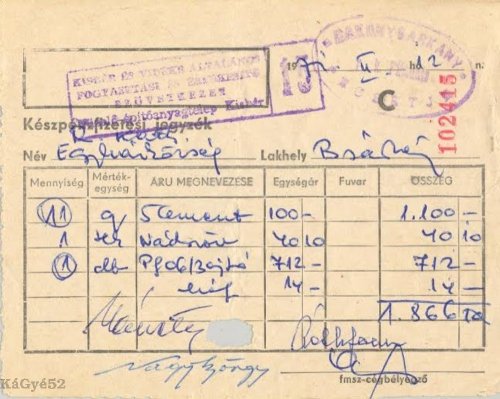 KISBÉR ÉS VIDÉKE ÁLTALÁNOS
FOGYASZTÁSI ÉS ÉRTÉKESÍTŐ
SZÖVETKEZET
építőanyagtelep Kisbér
15
BAKONYSÁRKÁNY
19 II hó 12
C
102415
Készpénzfizetési jegyzék
R. Kat.
Név Egyházközség Lakhely Bsárkány
Mennyiség Mértékegység ÁRU MEGNEVEZÉSE Egységár Fuvar ÖSSZEG
11 q Cement 100- 1.100-
1 Nádszöv 40 10 40 10
1 db ajtó 712- 712-
14- 14-
1.866 10
Nagy György
fmsz-cégbélyegző
KáGyé52